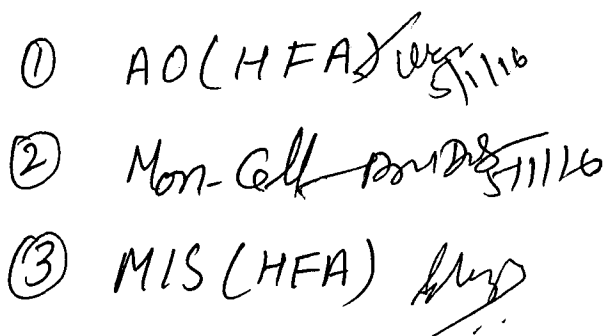 ① AO(HFA) 5/1/16
② Mon-Cell 5/1/16
③ MIS (HFA)